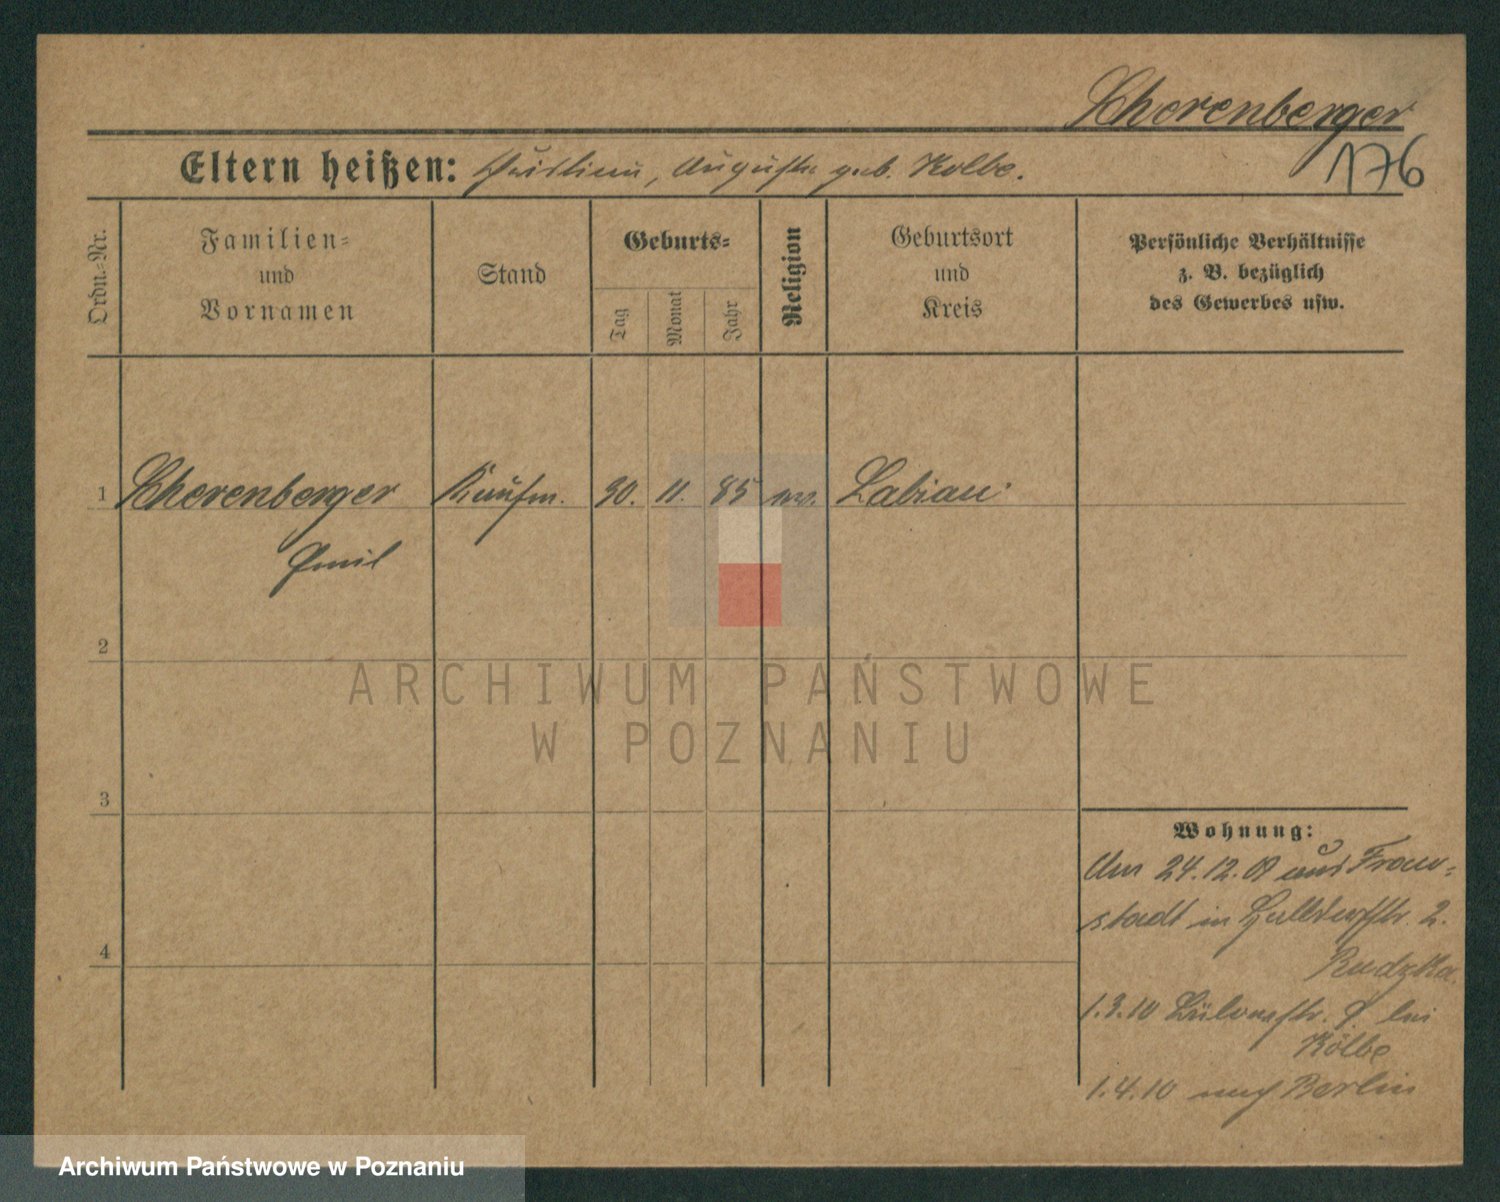 Scherenberger
176
Eltern heißen: Christian, Auguste geb. Kolbe.
Ordn.-Nr.
Familien-
und
Vornamen
Stand
Geburts-
Tag
Monat
Jahr
Religion
Geburtsort
und
Kreis
Persönliche Verhältnisse
z. B. bezüglich
des Gewerbes usw.
1 Scherenberger Kaufm. 30. 11. 85 ev. Labiau
Emil
2
3
4
Wohnung:
Am 24.12.09 aus Frau-
stadt in 2.
Rudzka
1.3.10 Bülowstr. 9 bei
Kolbe
1.4.10 nach Berlin
ARCHIWUM PAŃSTWOWE
W POZNANIU
Archiwum Państwowe w Poznaniu